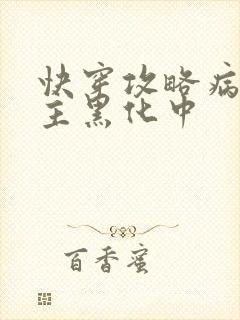 快穿攻略病
主黑化中
百香蜜